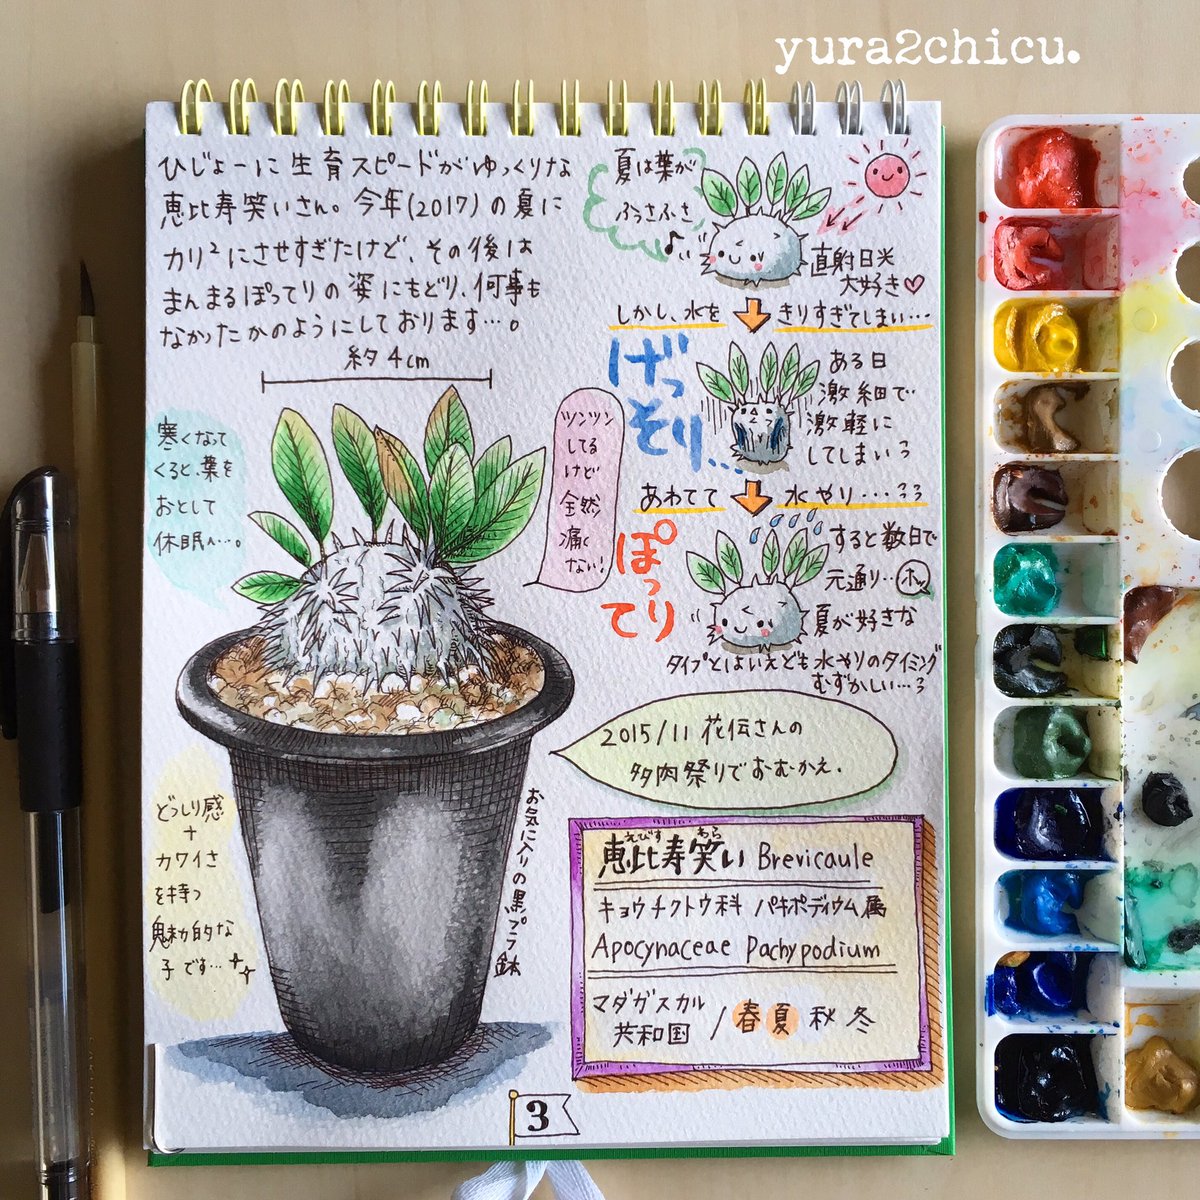 yura2chicu.
ひじょーに生育スピードがゆっくりな
恵比寿笑いさん。今年(2017)の夏に
カリ²にさせすぎたけど、その後は
まんまるぽってりの姿にもどり、何事も
なかったかのようにしております…。
約4cm
寒くなって
くると、葉を
おとして
休眠へ…。
ツンツン
してる
けど
全然
痛く
ない!
どっしり感
+
カワイさ
を持つ
魅力的な
子です…
お気に入りの黒プラ鉢
夏は葉が
ふさふさ
直射日光
大好き♡
しかし、水を
きりすぎてしまい…
げっそり…
ある日
激細で
激軽に
してしまい
あわてて
水やり…
ぽってり
すると数日で
元通り…
ホッ
夏が好きな
タイプとはいえども水やりのタイミング
むずかしい…
2015/11 花伝さんの
多肉祭りでおむかえ.
えびす わら
恵比寿笑い Brevicaule
キョウチクトウ科 パキポディウム属
Apocynaceae Pachypodium
マダガスカル
共和国
/春夏秋冬
3